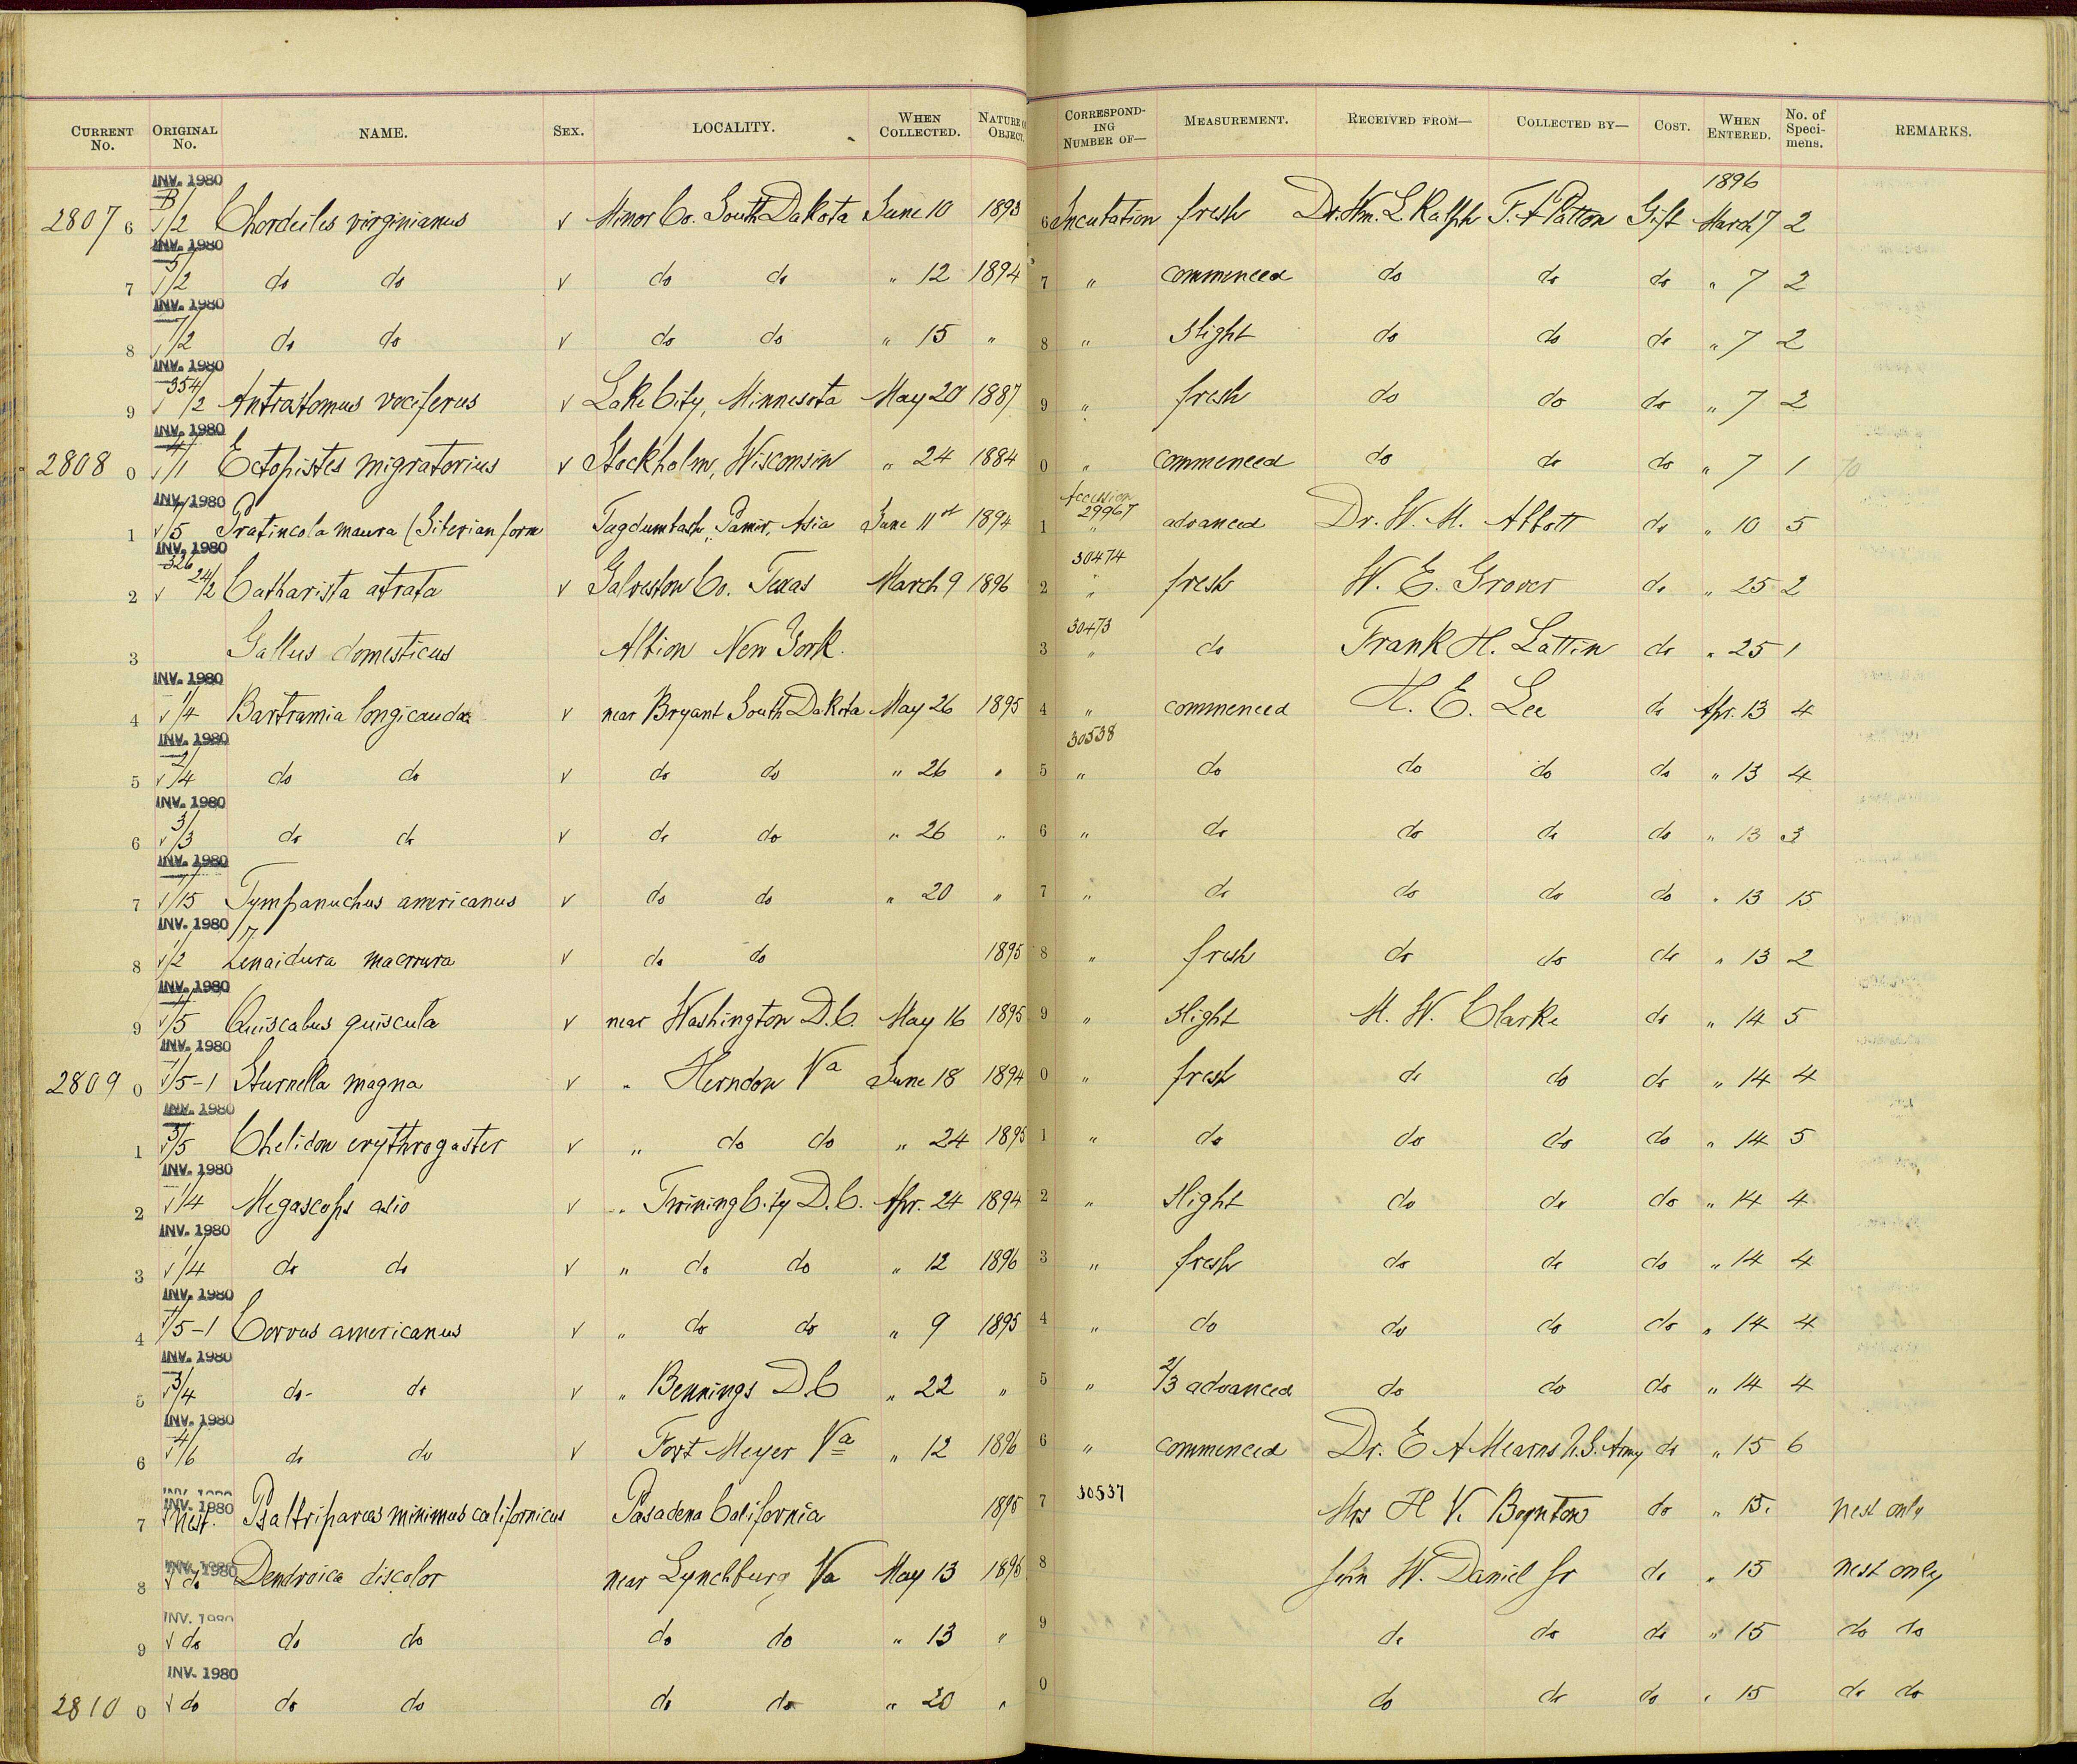 CURRENT No. ORIGINAL No. NAME. SEX. LOCALITY. WHEN COLLECTED. NATURE OBJECT. CORRESPOND-ING NUMBER OF— MEASUREMENT. RECEIVED FROM— COLLECTED BY— COST. WHEN ENTERED. No. of Speci-mens. REMARKS.
INV. 1980 1896
2807 6 1/2 Chordeiles virginianus v Minor Co. South Dakota June 10 1893 6 Incubation fresh Dr. Wm. L. Ralph F. A. Patton Gift March 7 2
INV. 1980
7 5/2 do do v do do " 12 1894 7 " commenced do do do " 7 2
INV. 1980
8 7/2 do do v do do " 15 " 8 " slight do do do " 7 2
INV. 1980
9 354/2 Antrostomus vociferus v Lake City, Minnesota May 20 1887 9 " fresh do do do " 7 2
INV. 1980
2808 0 1/1 Ectopistes migratorius v Stockholm, Wisconsin " 24 1884 0 " commenced do do do " 7 1 70
INV. 1980 Accession 29967
1 v/5 Pratincola maura (Siberian form Tagdumbash, Pamir, Asia June 11 1894 1 " advanced Dr. W. M. Abbott do " 10 5
INV. 1980 30474
2 v 326 24/2 Catharista atrata v Galveston Co. Texas March 9 1896 2 " fresh W. E. Grover do " 25 2
30473
3 Gallus domesticus Albion New York. 3 " do Frank H. Lattin do " 25 1
INV. 1980
4 v 1/4 Bartramia longicauda v near Bryant South Dakota May 26 1895 4 " commenced H. E. Lee do Apr. 13 4
INV. 1980 30538
5 v 2/4 do do v do do " 26 " 5 " do do do do " 13 4
INV. 1980
6 v 3/3 do do v do do " 26 " 6 " do do do do " 13 3
INV. 1980
7 1/15 Tympanuchus americanus v do do " 20 " 7 " do do do do " 13 15
INV. 1980
8 1/2 Zenaidura macroura v do do 1895 8 " fresh do do do " 13 2
INV. 1980
9 1/5 Quiscalus quiscula v near Washington D.C. May 16 1895 9 " slight M. W. Clarke do " 14 5
INV. 1980
2809 0 1/5-1 Sturnella magna v " Herndon Va June 18 1894 0 " fresh do do do " 14 4
INV. 1980
1 3/5 Chelidon erythrogaster v " do do " 24 1895 1 " do do do do " 14 5
INV. 1980
2 1/4 Megascops asio v " Twining City D.C. Apr. 24 1894 2 " slight do do do " 14 4
INV. 1980
3 1/4 do do v " do do " 12 1896 3 " fresh do do do " 14 4
INV. 1980
4 1/5-1 Corvus americanus v " do do " 9 1895 4 " do do do do " 14 4
INV. 1980
5 3/4 do do v " Bennings D.C " 22 " 5 " 2/3 advanced do do do " 14 4
INV. 1980
6 4/6 do do v Fort Meyer Va " 12 1896 6 " commenced Dr. E A Mearns U.S. Army do " 15 6
INV. 1980
7 v Nest. Psaltriparus minimus californicus Pasadena California 1895 7 30537 Mrs H V. Boynton do " 15. nest only
INV. 1980
8 v do Dendroica discolor near Lynchburg Va May 13 1895 8 John W. Daniel Jr do " 15 nest only
INV. 1980
9 v do do do do do " 13 " 9 do do do " 15 do do
INV. 1980
2810 0 v do do do do do " 20 " 0 do do do " 15 do do